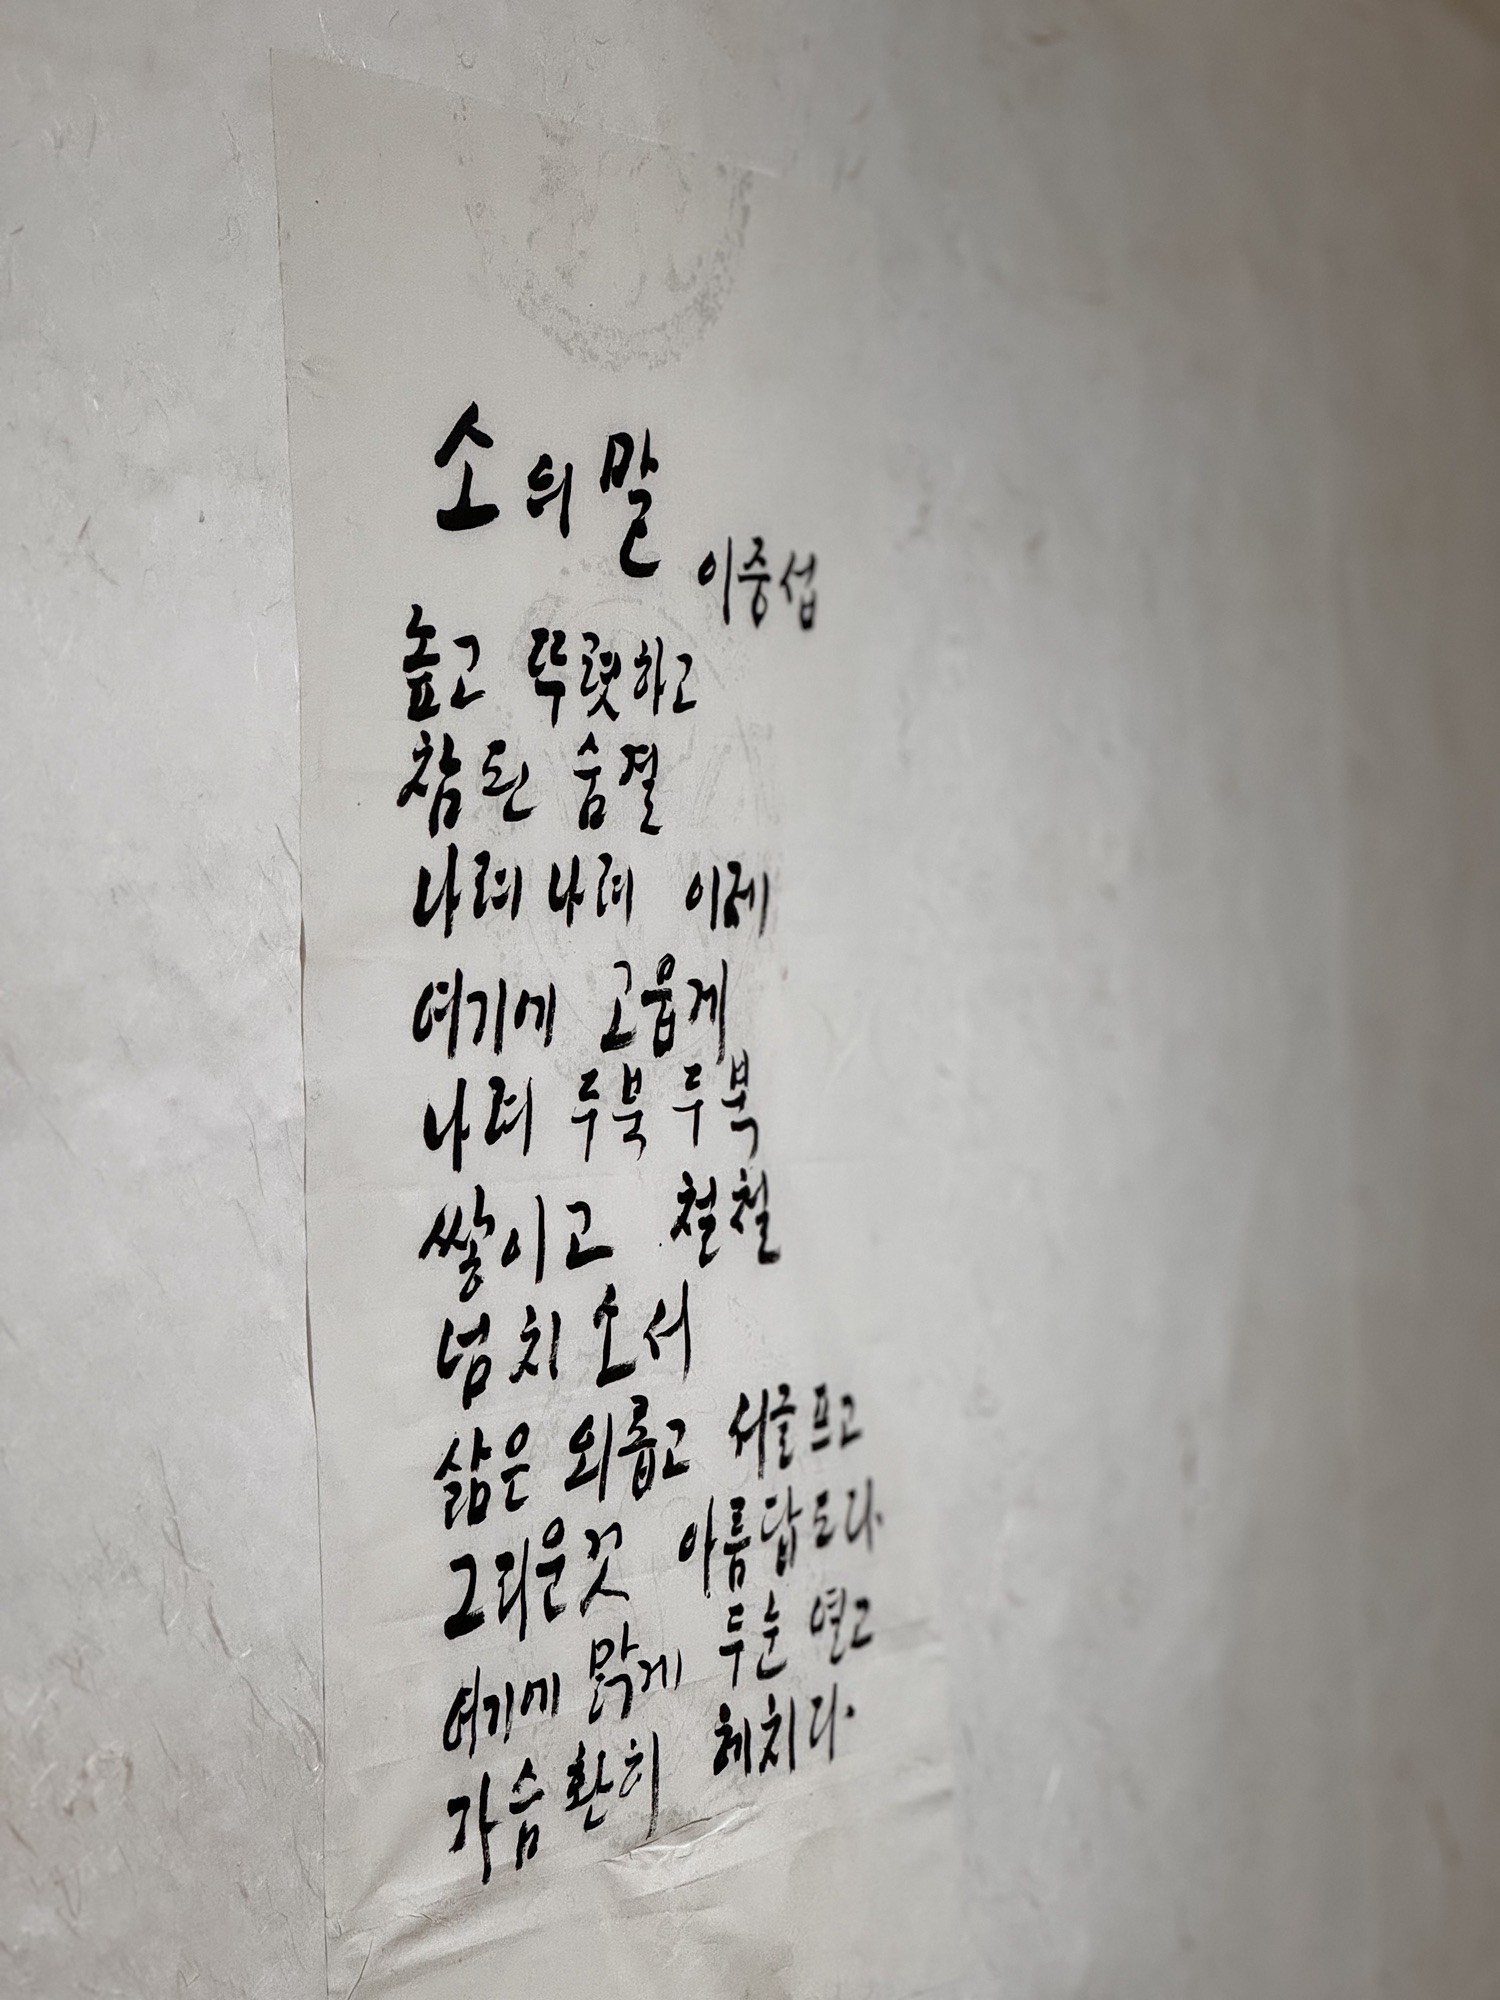 소의 말
이중섭
높고 뚜렷하고
참된 숨결
나려 나려 이제
여기에 고웁게
나려 두북 두북
쌓이고 철철
넘치소서
삶은 외롭고 서글프고
그리운것 아름답도다.
여기에 맑게 두눈 열고
가슴 환히 헤치다.